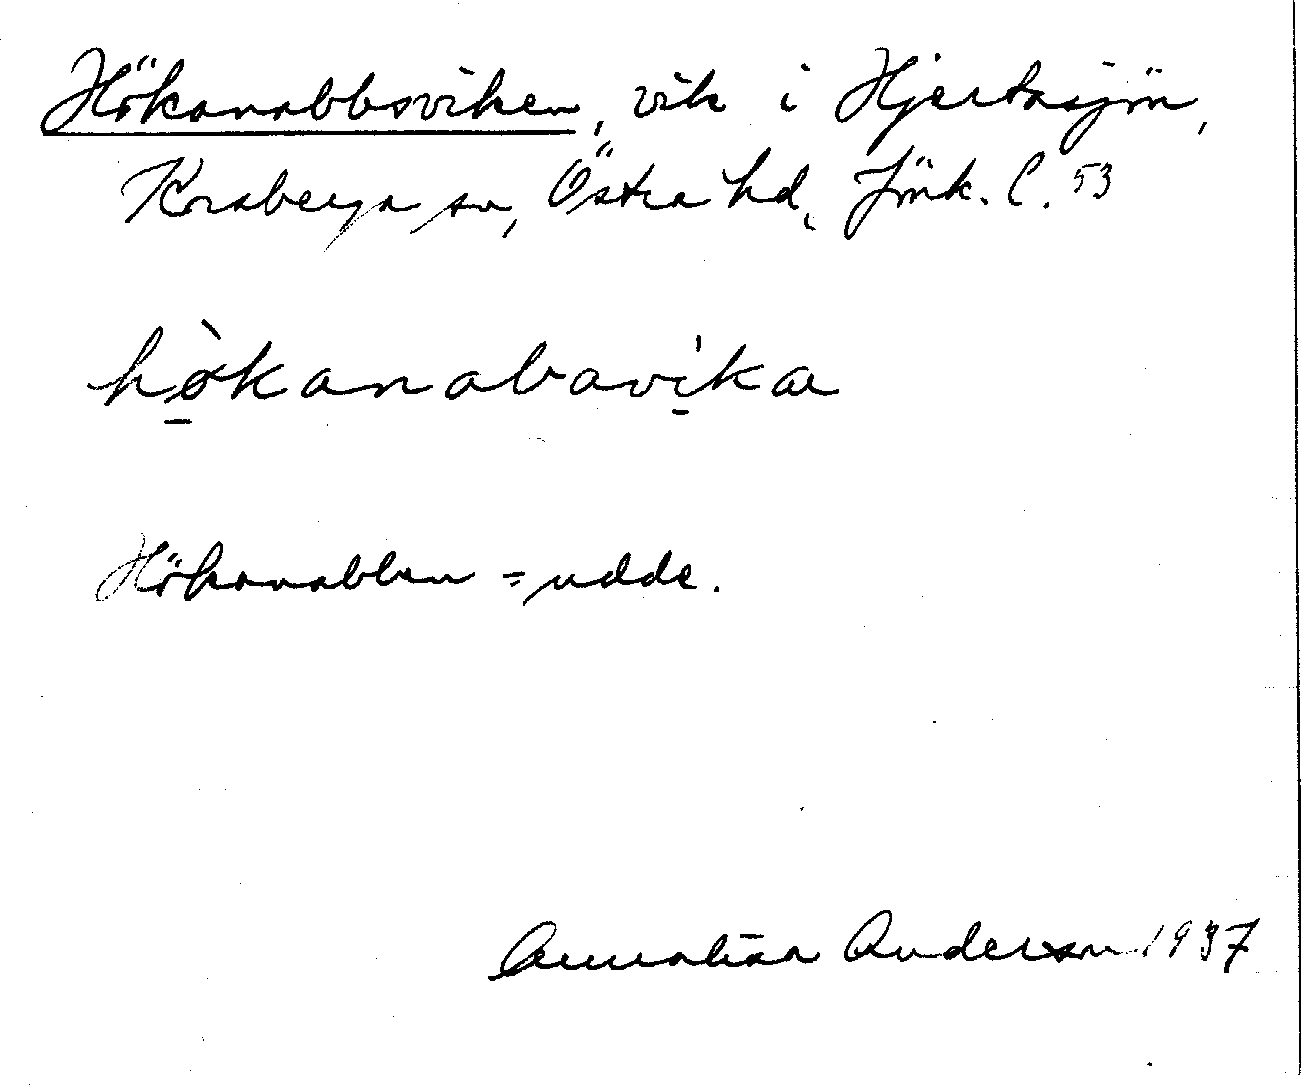 Hökanabbsviken, vik i Hjertasjön,
Korsberga sn, Östra hd, Jönk. l. 53
hökanabavika
Hökanabben = udde.
Andersson 1937